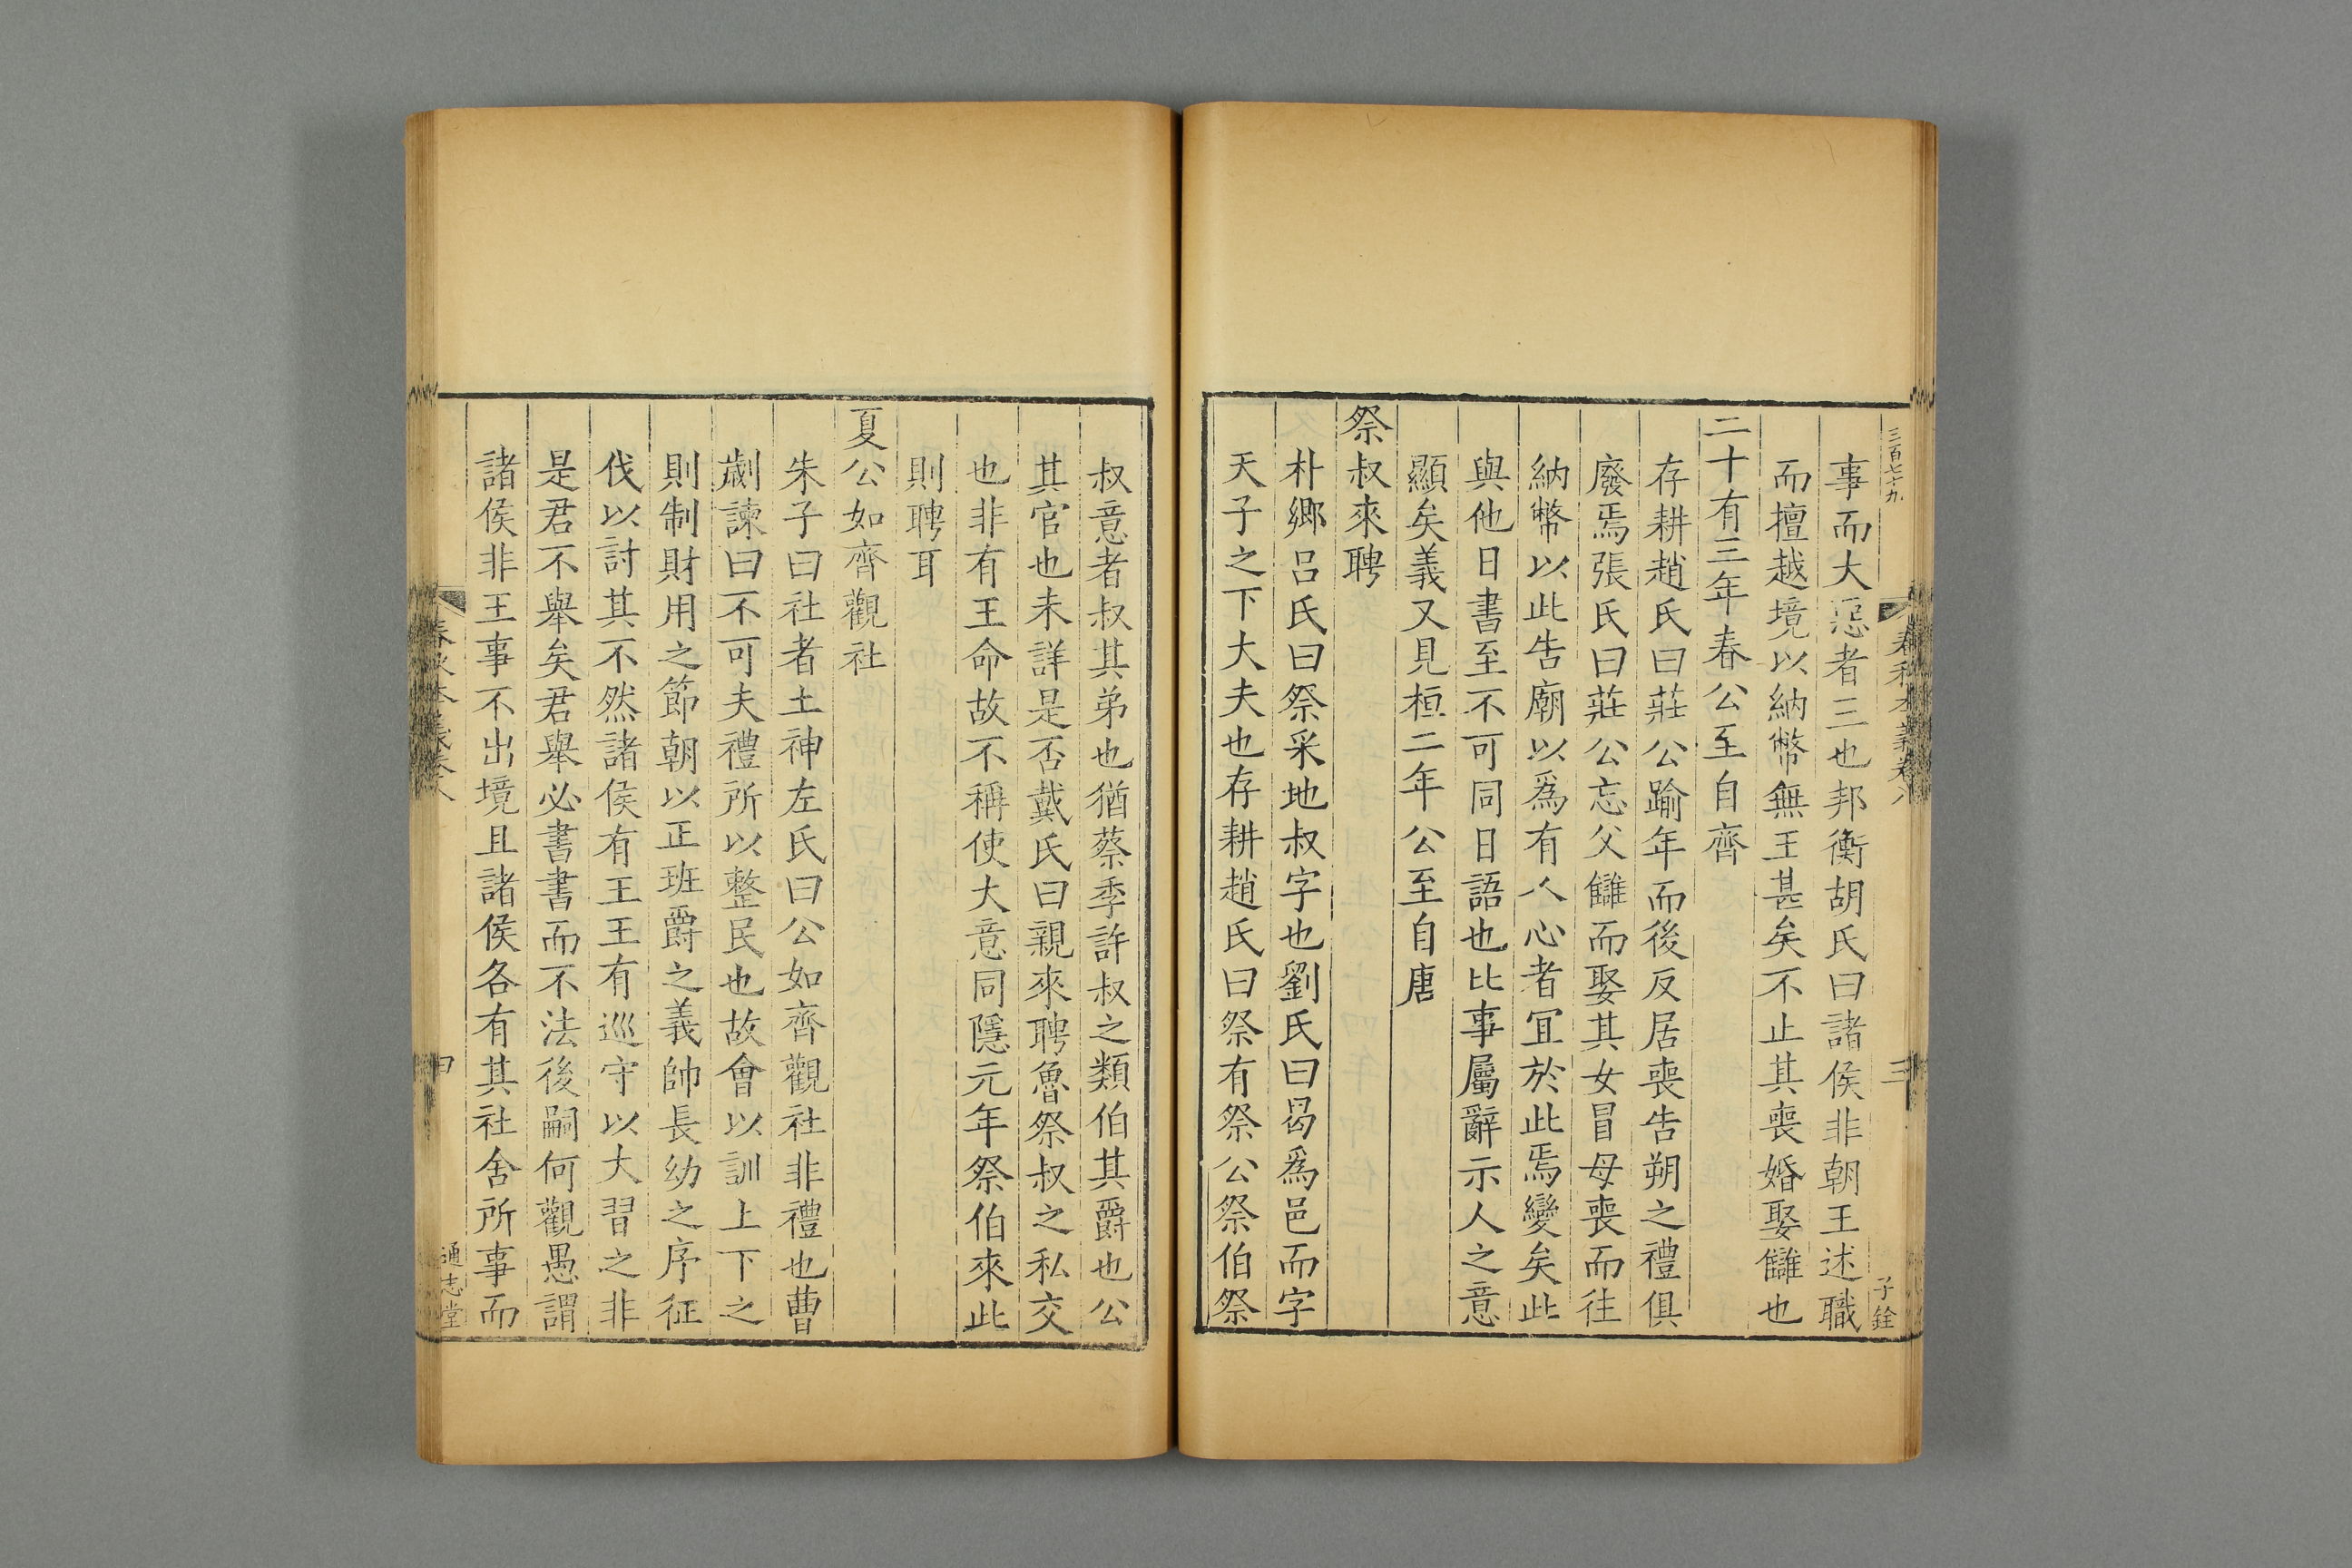 三百七十九
春秋本義卷八
三
子銓
事而大惡者三也邦衡胡氏曰諸侯非朝王述職
而擅越境以納幣無王甚矣不止其喪婚娶讎也
二十有三年春公至自齊
存耕趙氏曰莊公踰年而後反居喪告朔之禮俱
廢焉張氏曰莊公忘父讎而娶其女冒母喪而徃
納幣以此告廟以爲有人心者冝於此焉變矣此
與他日書至不可同日語也比事屬辭示人之意
顯矣義又見桓二年公至自唐
祭叔來聘
朴鄉呂氏曰祭采地叔字也劉氏曰曷爲邑而字
天子之下大夫也存耕趙氏曰祭有祭公祭伯祭
叔意者叔其弟也猶蔡季許叔之類伯其爵也公
其官也未詳是否戴氏曰親來聘魯祭叔之私交
也非有王命故不稱使大意同隱元年祭伯來此
則聘耳
夏公如齊觀社
朱子曰社者土神左氏曰公如齊觀社非禮也曹
劌諫曰不可夫禮所以整民也故會以訓上下之
則制財用之節朝以正班爵之義帥長幼之序征
伐以討其不然諸侯有王王有巡守以大習之非
是君不舉矣君舉必書書而不法後嗣何觀愚謂
諸侯非王事不出境且諸侯各有其社舍所事而
春秋本義卷八
通志堂